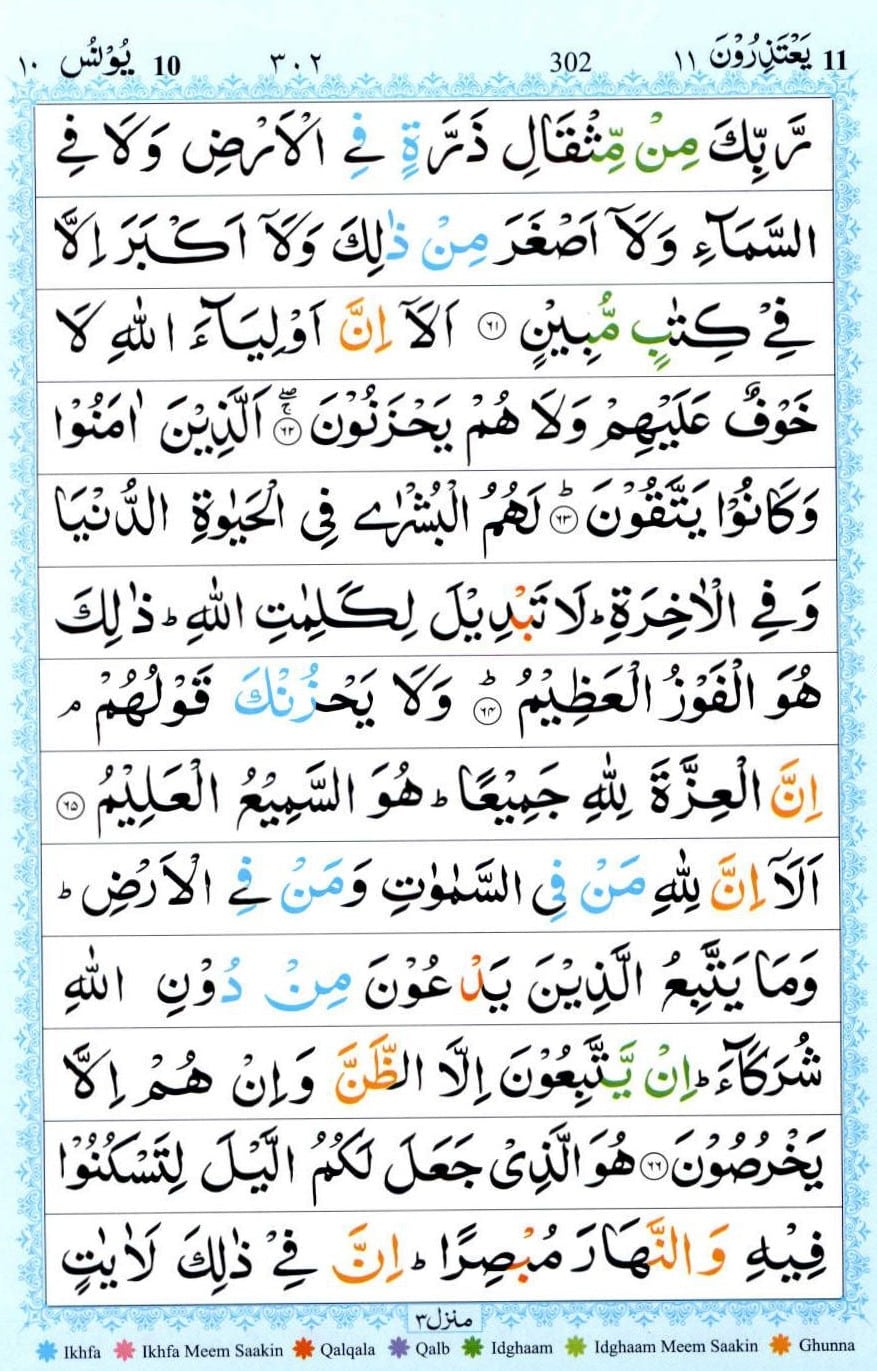 يَعْتَذِرُوْنَ 11 ١١ 302 ٣٠٢ 10 يُوْنُسُ ١٠
رَّبِّكَ مِنْ مِّثْقَالِ ذَرَّةٍ فِي الْاَرْضِ وَلَا فِي
السَّمَآءِ وَلَآ اَصْغَرَ مِنْ ذٰلِكَ وَلَآ اَكْبَرَ اِلَّا
فِيْ كِتٰبٍ مُّبِيْنٍ ۝٦١ اَلَآ اِنَّ اَوْلِيَآءَ اللّٰهِ لَا
خَوْفٌ عَلَيْهِمْ وَلَا هُمْ يَحْزَنُوْنَ ۝٦٢ۚۖ اَلَّذِيْنَ اٰمَنُوْا
وَكَانُوْا يَتَّقُوْنَ ۝٦٣ؕ لَهُمُ الْبُشْرٰى فِى الْحَيٰوةِ الدُّنْيَا
وَفِي الْاٰخِرَةِؕ لَا تَبْدِيْلَ لِكَلِمٰتِ اللّٰهِؕ ذٰلِكَ
هُوَ الْفَوْزُ الْعَظِيْمُ ۝٦٤ؕ وَلَا يَحْزُنْكَ قَوْلُهُمْۘ
اِنَّ الْعِزَّةَ لِلّٰهِ جَمِيْعًاؕ هُوَ السَّمِيْعُ الْعَلِيْمُ ۝٦٥
اَلَآ اِنَّ لِلّٰهِ مَنْ فِى السَّمٰوٰتِ وَمَنْ فِي الْاَرْضِؕ
وَمَا يَتَّبِعُ الَّذِيْنَ يَدْعُوْنَ مِنْ دُوْنِ اللّٰهِ
شُرَكَآءَؕ اِنْ يَّتَّبِعُوْنَ اِلَّا الظَّنَّ وَاِنْ هُمْ اِلَّا
يَخْرُصُوْنَ ۝٦٦ هُوَ الَّذِيْ جَعَلَ لَكُمُ الَّيْلَ لِتَسْكُنُوْا
فِيْهِ وَالنَّهَارَ مُبْصِرًاؕ اِنَّ فِيْ ذٰلِكَ لَاٰيٰتٍ
منزل ٣
Ikhfa Ikhfa Meem Saakin Qalqala Qalb Idghaam Idghaam Meem Saakin Ghunna